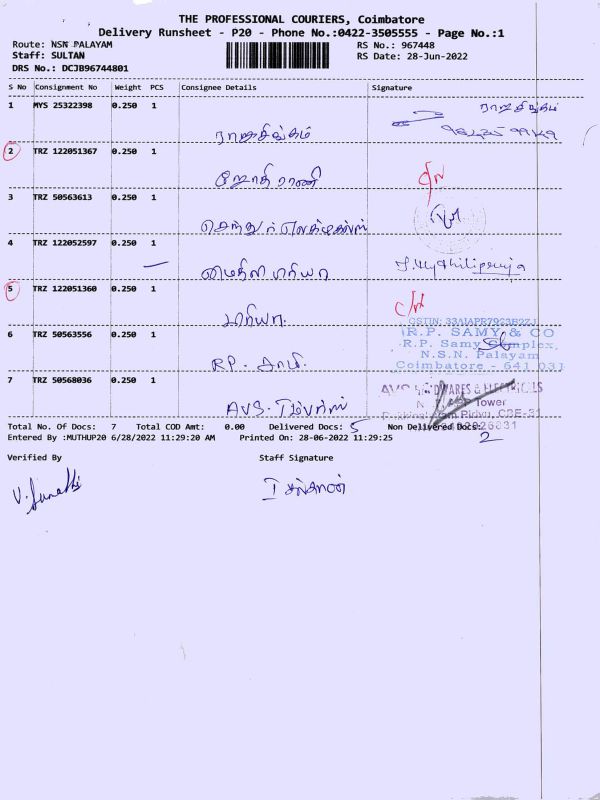 THE PROFESSIONAL COURIERS, Coimbatore
Delivery Runsheet - P20 - Phone No.:0422-3505555 - Page No.:1
Route: NSN PALAYAM RS No.: 967448
Staff: SULTAN RS Date: 28-Jun-2022
DRS No.: DCJB96744801
S No Consignment No Weight PCS Consignee Details Signature
1 MYS 25322398 0.250 1 ராஜசிங்கம் ராஜசிங்கம்
2 TRZ 122051367 0.250 1 ஜோதி ராணி
3 TRZ 50563613 0.250 1 செந்தூர்
4 TRZ 122052597 0.250 1 மைதிலி பிரியா
5 TRZ 122051360 0.250 1 பிரியா
GSTIN: 33AIAPR7923B2Z1
R.P. SAMY & CO
6 TRZ 50563556 0.250 1 RP. சாமி R.P. Samy Complex,
N.S.N. Palayam
Coimbatore - 641 031
7 TRZ 50568036 0.250 1 AVS. டிம்பர்ஸ் AVS HARDWARES & ELECTRICALS
Tower
Pirivu, CBE-31
Total No. Of Docs: 7 Total COD Amt: 0.00 Delivered Docs: 5 Non Delivered Docs: 2
Entered By :MUTHUP20 6/28/2022 11:29:20 AM Printed On: 28-06-2022 11:29:25
Verified By Staff Signature